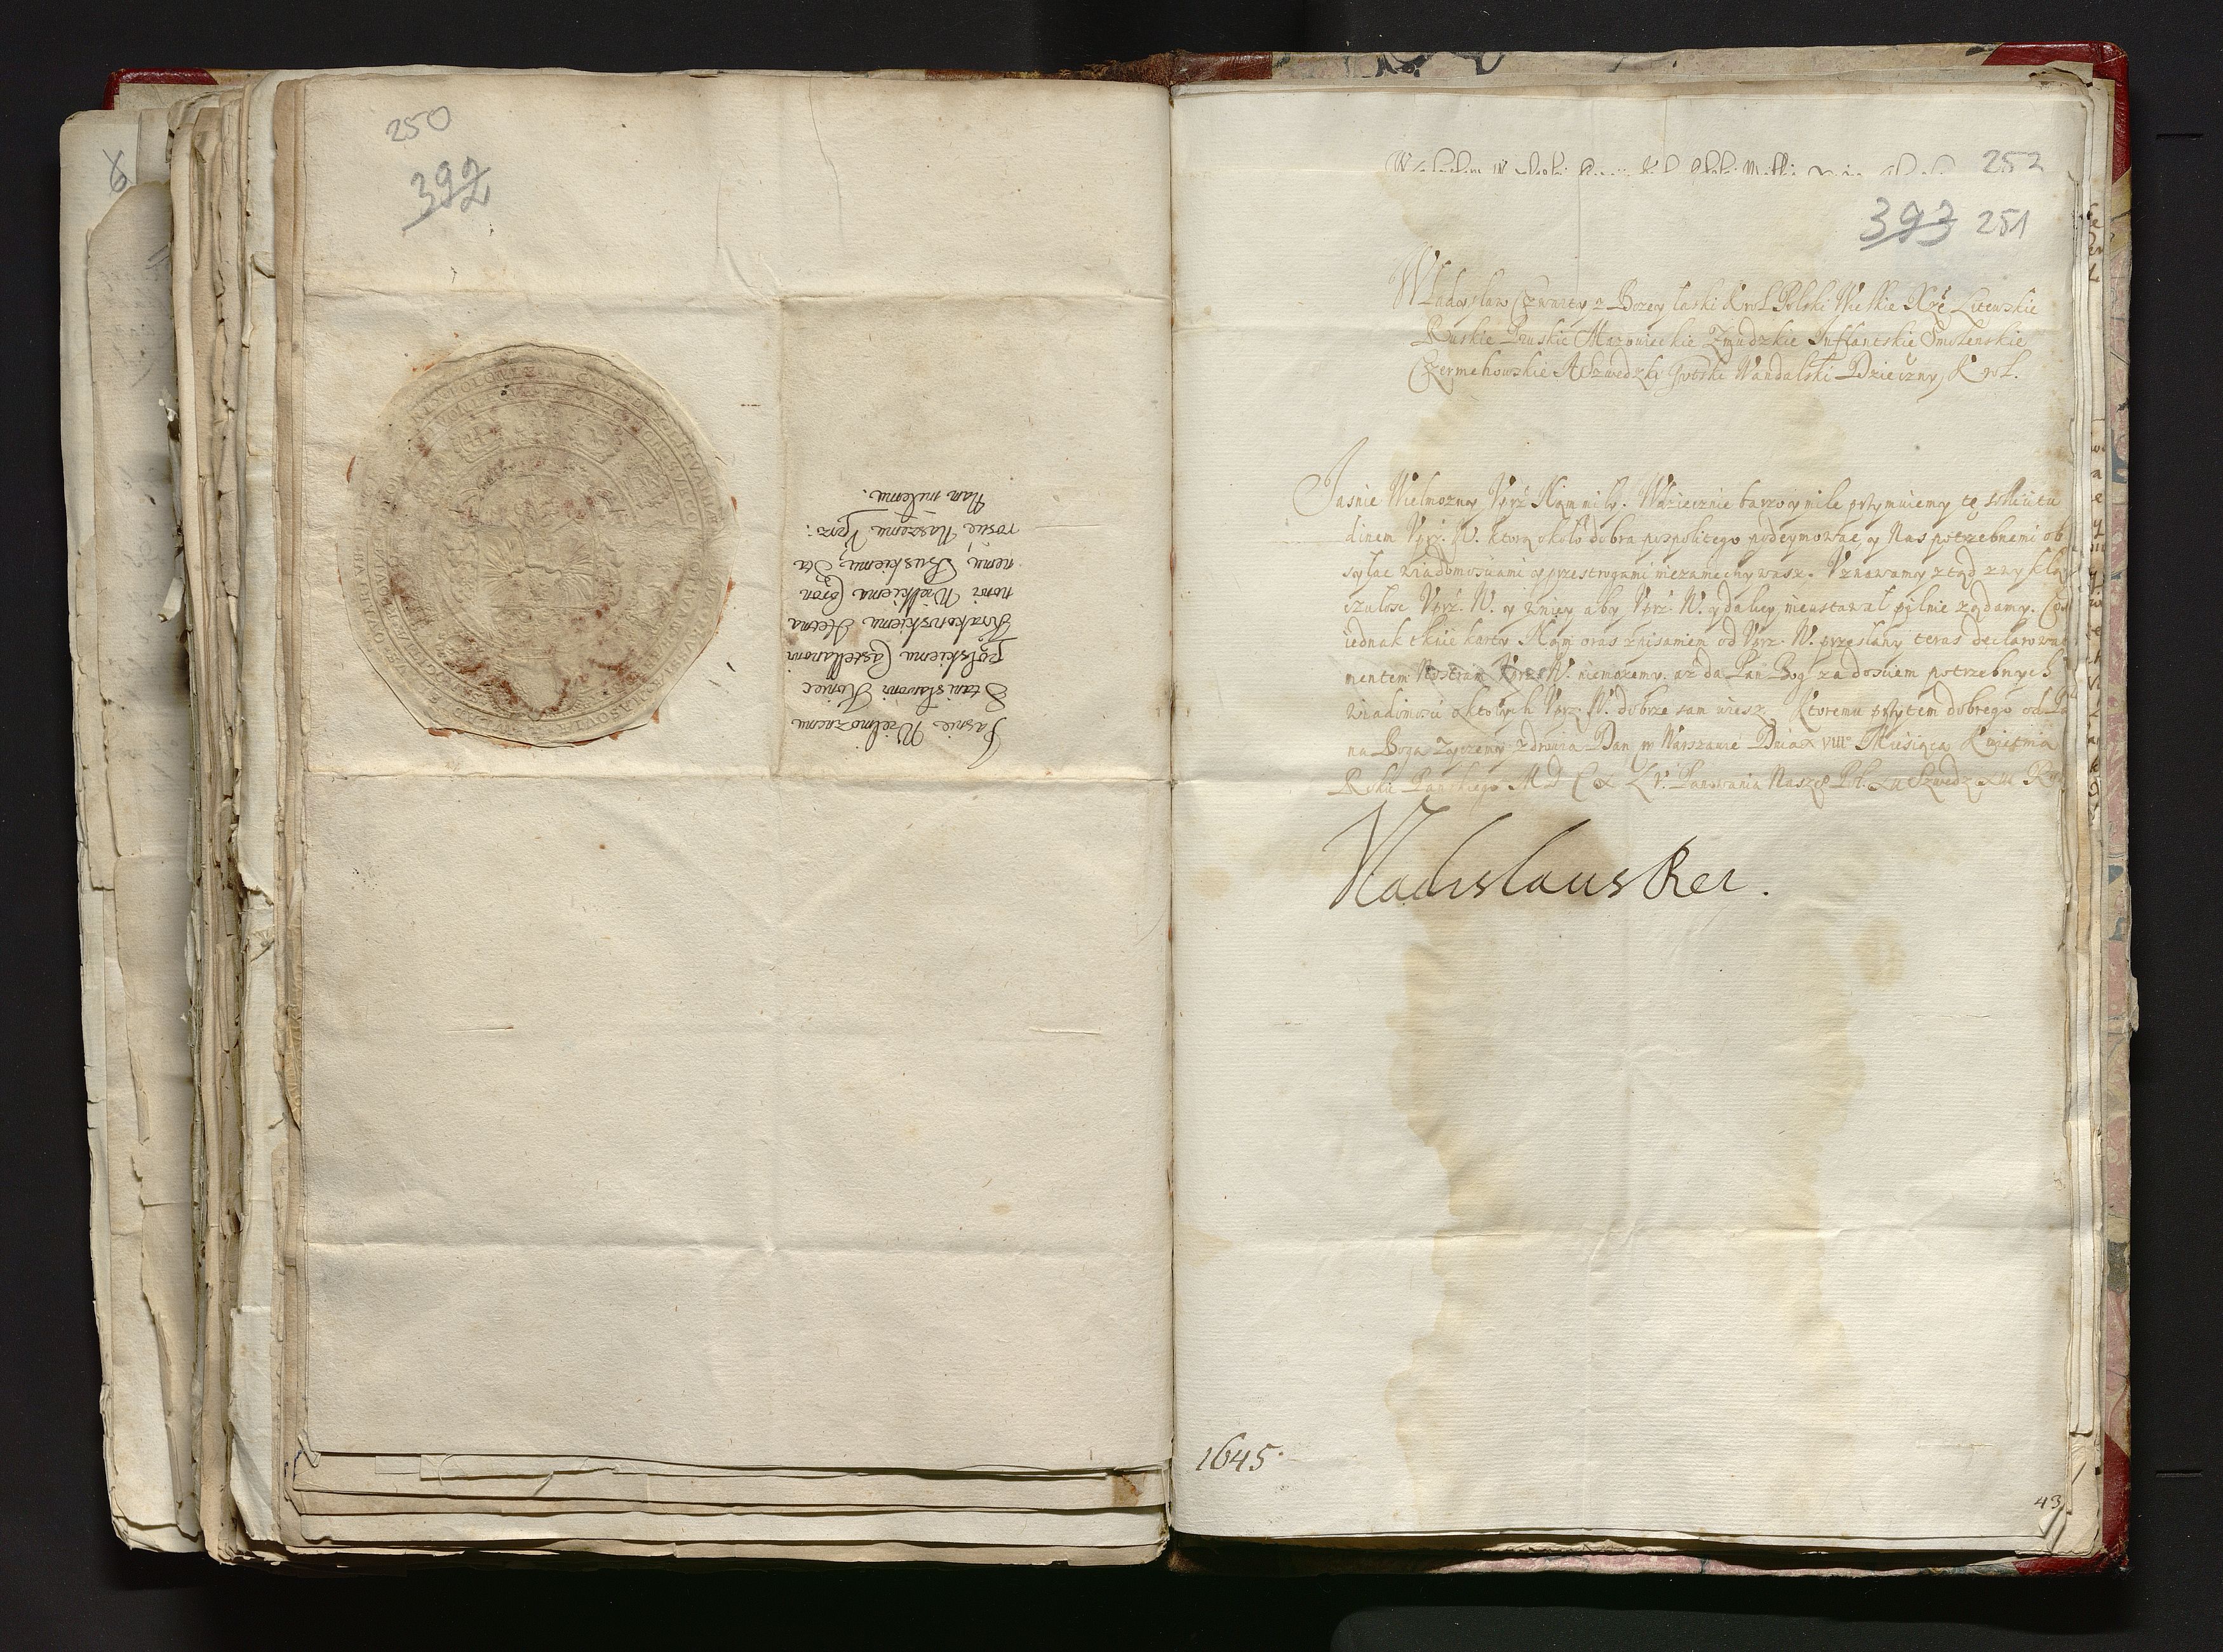 250
392
Jasnie Wielmożnemu
Stanisławowi Koniec
polskiemu Castellanowi
Krakowskiemu Hetma
nowi Wielkiemu Coron
nemu, Buskiemu, Sta
roście Naszemu Uprz:
Nam miłemu.
252
393 251
Władysław Czwarty z Bożey łaski Krol Polski Wielkie Xże Litewskie
Ruskie Pruskie Mazowieckie Zmudzkie Inflantskie Smolenskie
Czerniehowskie A Szwedzki Gotski Wandalski Dzieczny Krol.
Jasnie Wielmozny Uprz. Nam miły. Wdziecznie barzo y mile przymuiemy tę sollicitu
dinem Uprz. W. ktorą około dobra pospolitego podeymowac, y Nas potrzebnemi ob
syłac wiadomosciami y przestrogami niezaniechywasz. Uznawamy ztąd zwykłą
czułosc Uprz. W. y zniey aby Uprz. W. y daliey nieustawał pilnie ządamy. Co
iednak tknie karty Nam oraz z pisaniem od Uprz. W. przesłany teras declarowac
mentem Nostram Uprz. W. niemozemy, az da Pan Bog za dosciem potrzebnych
wiadomosci o ktorych Uprz. W. dobrze sam wiesz. Ktoremu przytem dobrego od Pa
na Boga zyczemy zdrowia Dan w Warszawie Dnia VIII Miesiąca Kwietnia
Roku Panskiego MDCXLV. Panowania Nasze Pol. XII Szwedz XIII Ro
Vladislaus Rex.
1645.
43